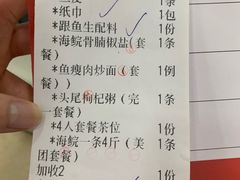 *纸巾 1包
*跟鱼生配料 1份
*海鲩骨腩椒盐(套餐) 1条
*鱼瘦肉炒面(套餐) 1例
*头尾枸杞粥(完一套餐) 1条
*4人套餐茶位 1份
*海鲩一条4斤(美团套餐) 1条
加收2 1份